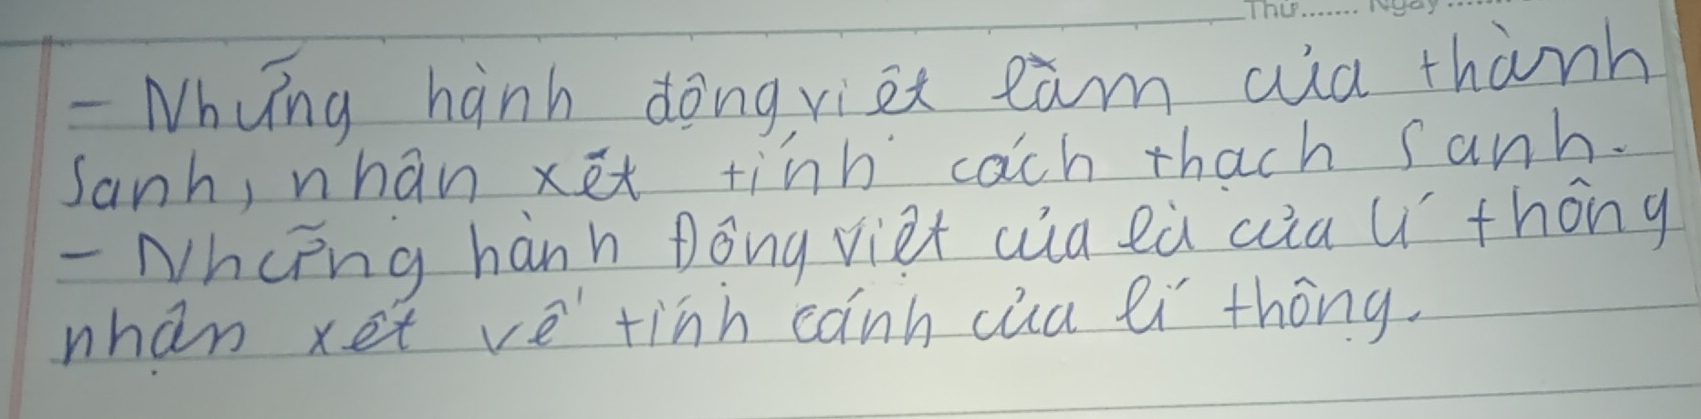 Thứ....... Ngày.......
- Những hành động việt lăm của thành
sanh, nhận xét tính cách thạch sanh.
- Những hành Động việt của là của lí thông
nhận xét về tính cánh của lí thông.